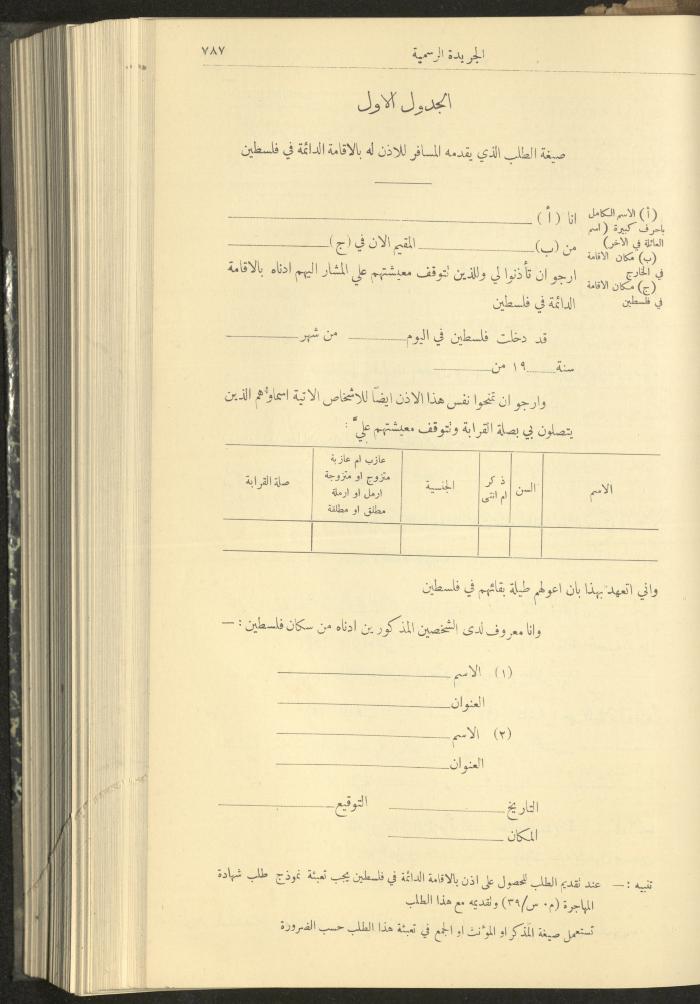 الجريدة الرسمية ٧٨٧
الجدول الاول
صيغة الطلب الذي يقدمه المسافر للاذن له بالاقامة الدائمة في فلسطين
(أ) الاسم الكامل
باحرف كبيرة (اسم
العائلة في الآخر)
(ب) مكان الاقامة
في الخارج
(ج) مكان الاقامة
في فلسطين
انا (أ)
من (ب) المقيم الان في (ج)
ارجو ان تأذنوا لي وللذين تتوقف معيشتهم علي المشار اليهم ادناه بالاقامة
الدائمة في فلسطين
قد دخلت فلسطين في اليوم من شهر
سنة ١٩ من
وارجو ان تمنحوا نفس هذا الاذن ايضًا للاشخاص الاتية اسماؤهم الذين
يتصلون بي بصلة القرابة وتتوقف معيشتهم عليَّ :
الاسم
السن
ذكر
ام انثى
الجنسية
عازب ام عازبة
متزوج او متزوجة
ارمل او ارملة
مطلق او مطلقة
صلة القرابة
واني اتعهد بهذا بان اعولهم طيلة بقائهم في فلسطين
وانا معروف لدى الشخصين المذكورين ادناه من سكان فلسطين : —
(١) الاسم
العنوان
(٢) الاسم
العنوان
التاريخ التوقيع
المكان
تنبيه : — عند تقديم الطلب للحصول على اذن بالاقامة الدائمة في فلسطين يجب تعبئة نموذج طلب شهادة
المهاجرة (م٠ س/٣٩) وتقديمه مع هذا الطلب
تستعمل صيغة المذكر او المؤنث او الجمع في تعبئة هذا الطلب حسب الضرورة